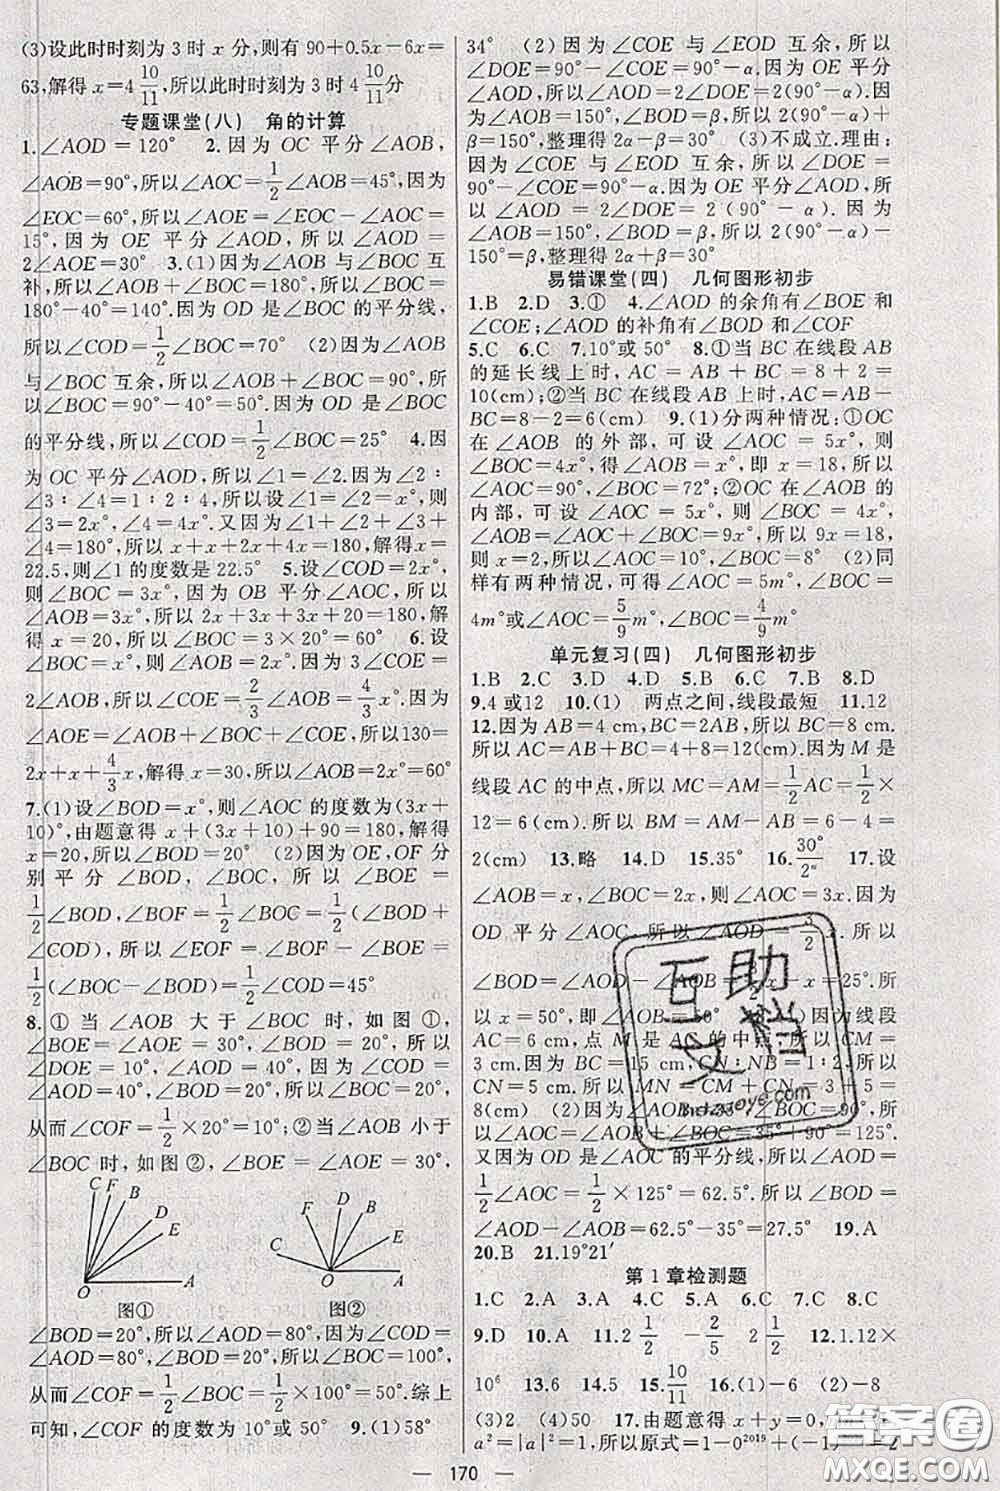 (3)设此时时刻为3时x分,则有90+0.5x-6x=
63,解得x=4 10/11,所以此时时刻为3时4 10/11分
专题课堂(八) 角的计算
1.∠AOD=120° 2.因为OC平分∠AOB,
∠AOB=90°,所以∠AOC=1/2∠AOB=45°,因为
∠EOC=60°,所以∠AOE=∠EOC-∠AOC=
15°,因为OE平分∠AOD,所以∠AOD=
2∠AOE=30° 3.(1)因为∠AOB与∠BOC互
补,所以∠AOB+∠BOC=180°,所以∠BOC=
180°-40°=140°.因为OD是∠BOC的平分线,
所以∠COD=1/2∠BOC=70° (2)因为∠AOB
与∠BOC互余,所以∠AOB+∠BOC=90°,所以
∠BOC=90°-40°=50°.因为OD是∠BOC
的平分线,所以∠COD=1/2∠BOC=25° 4.因
为OC平分∠AOD,所以∠1=∠2.因为∠2∶
∠3∶∠4=1∶2∶4,所以设∠1=∠2=x°,则
∠3=2x°,∠4=4x°.又因为∠1+∠2+∠3+
∠4=180°,所以x+x+2x+4x=180,解得x=
22.5,则∠1的度数是22.5° 5.设∠COD=2x°,
则∠BOC=3x°,因为OB平分∠AOC,所以
∠AOB=3x°.所以2x+3x+3x+20=180,解
得x=20,所以∠BOC=3×20°=60° 6.设
∠BOC=x°,则∠AOB=2x°.因为∠COE=
2∠AOE,所以∠COE=2/3∠AOE=4/3x°.因为
∠AOE=∠AOB+∠BOC+∠COE,所以130=
2x+x+4/3x,解得x=30,所以∠AOB=2x°=60°
7.(1)设∠BOD=x°,则∠AOC的度数为(3x+
10)°,由题意得x+(3x+10)+90=180,解得
x=20,所以∠BOD=20° (2)因为OE,OF分
别平分∠BOD,∠BOC,所以∠BOE=
1/2∠BOD,∠BOF=1/2∠BOC=1/2(∠BOD+
∠COD),所以∠EOF=∠BOF-∠BOE=
1/2(∠BOC-∠BOD)=1/2∠COD=45°
8.①当∠AOB大于∠BOC时,如图①,
∠BOE=∠AOE=30°,∠BOD=20°,所以
∠DOE=10°,∠AOD=40°,因为∠COD=
∠AOD=40°,∠BOD=20°,所以∠BOC=20°,
从而∠COF=1/2×20°=10°;②当∠AOB小于
∠BOC时,如图②,∠BOE=∠AOE=30°,
C F B
D
E
O A
图①
F D B
C E
O A
图②
∠BOD=20°,所以∠AOD=80°,因为∠COD=
∠AOD=80°,∠BOD=20°,所以∠BOC=100°,
从而∠COF=1/2∠BOC=1/2×100°=50°.综上
可知,∠COF的度数为10°或50° 9.(1)58°
34° (2)因为∠COE与∠EOD互余,所以
∠DOE=90°-∠COE=90°-α.因为OE平分
∠AOD,所以∠AOD=2∠DOE=2(90°-α),因
为∠AOB=150°,∠BOD=β,所以2(90°-α)
+β=150°,整理得2α-β=30° (3)不成立.理由:
因为∠COE与∠EOD互余,所以∠DOE=
90°-∠COE=90°-α.因为OE平分∠AOD,所
以∠AOD=2∠DOE=2(90°-α).因为
∠AOB=150°,∠BOD=β,所以2(90°-α)-
150°=β,整理得2α+β=30°
易错课堂(四) 几何图形初步
1.B 2.D 3.① 4.∠AOD的余角有∠BOE和
∠COE;∠AOD的补角有∠BOD和∠COF
5.C 6.C 7.10°或50° 8.①当BC在线段AB
的延长线上时,AC=AB+BC=8+2=
10(cm);②当BC在线段AB上时,AC=AB-
BC=8-2=6(cm) 9.(1)分两种情况:①OC
在∠AOB的外部,可设∠AOC=5x°,则
∠BOC=4x°,得∠AOB=x°,即x=18,所以
∠AOC=90°,∠BOC=72°;②OC在∠AOB的
内部,可设∠AOC=5x°,则∠BOC=4x°,
∠AOB=∠AOC+∠BOC=9x°,所以9x=18,
则x=2,所以∠AOC=10°,∠BOC=8° (2)同
样有两种情况,可得∠AOC=5m°,∠BOC=
4m°或∠AOC=5/9m°,∠BOC=4/9m°
单元复习(四) 几何图形初步
1.B 2.C 3.D 4.D 5.D 6.C 7.B 8.D
9.4或12 10.(1) 两点之间,线段最短 11.12
12.因为AB=4 cm,BC=2AB,所以BC=8 cm.
所以AC=AB+BC=4+8=12(cm).因为M是
线段AC的中点,所以MC=AM=1/2AC=1/2×
12=6(cm).所以BM=AM-AB=6-4=
2(cm) 13.略 14.D 15.35° 16.30°/2ⁿ 17.设
∠AOB=x,∠BOC=2x,则∠AOC=3x.因为
OD平分∠AOC,所以∠AOD=3/2x.所以
∠BOD=∠AOD-∠AOB=x/2=25°.所
以x=50°,即∠AOB=50° (1)因为线段
AC=6 cm,点M是AC的中点,所以CM=
3 cm.因为BC=15 cm,CN∶NB=1∶2,所以
CN=5 cm.所以MN=CM+CN=3+5=
8(cm) (2)因为∠AOB=35°,∠BOC=90°,所
以∠AOC=∠AOB+∠BOC=35°+90°=125°.
又因为OD是∠AOC的平分线,所以∠AOD=
1/2∠AOC=1/2×125°=62.5°.所以∠BOD=
∠AOD-∠AOB=62.5°-35°=27.5° 19.A
20.B 21.19°21′
第1章检测题
1.C 2.A 3.A 4.C 5.A 6.C 7.C 8.C
9.D 10.A 11.2 1/2 -2/5 2 1/2 12.1.12×
10⁶ 13.6 14.5 15.10/11 16.(1)-6 (2)-8
(3)2 (4)50 17.由题意得x+y=0,
a²=|a|²=1,所以原式=1-0²⁰¹⁹+(-1)²⁰²⁰=2
— 170 —
互助文栏
答案圈
MXQE.COM